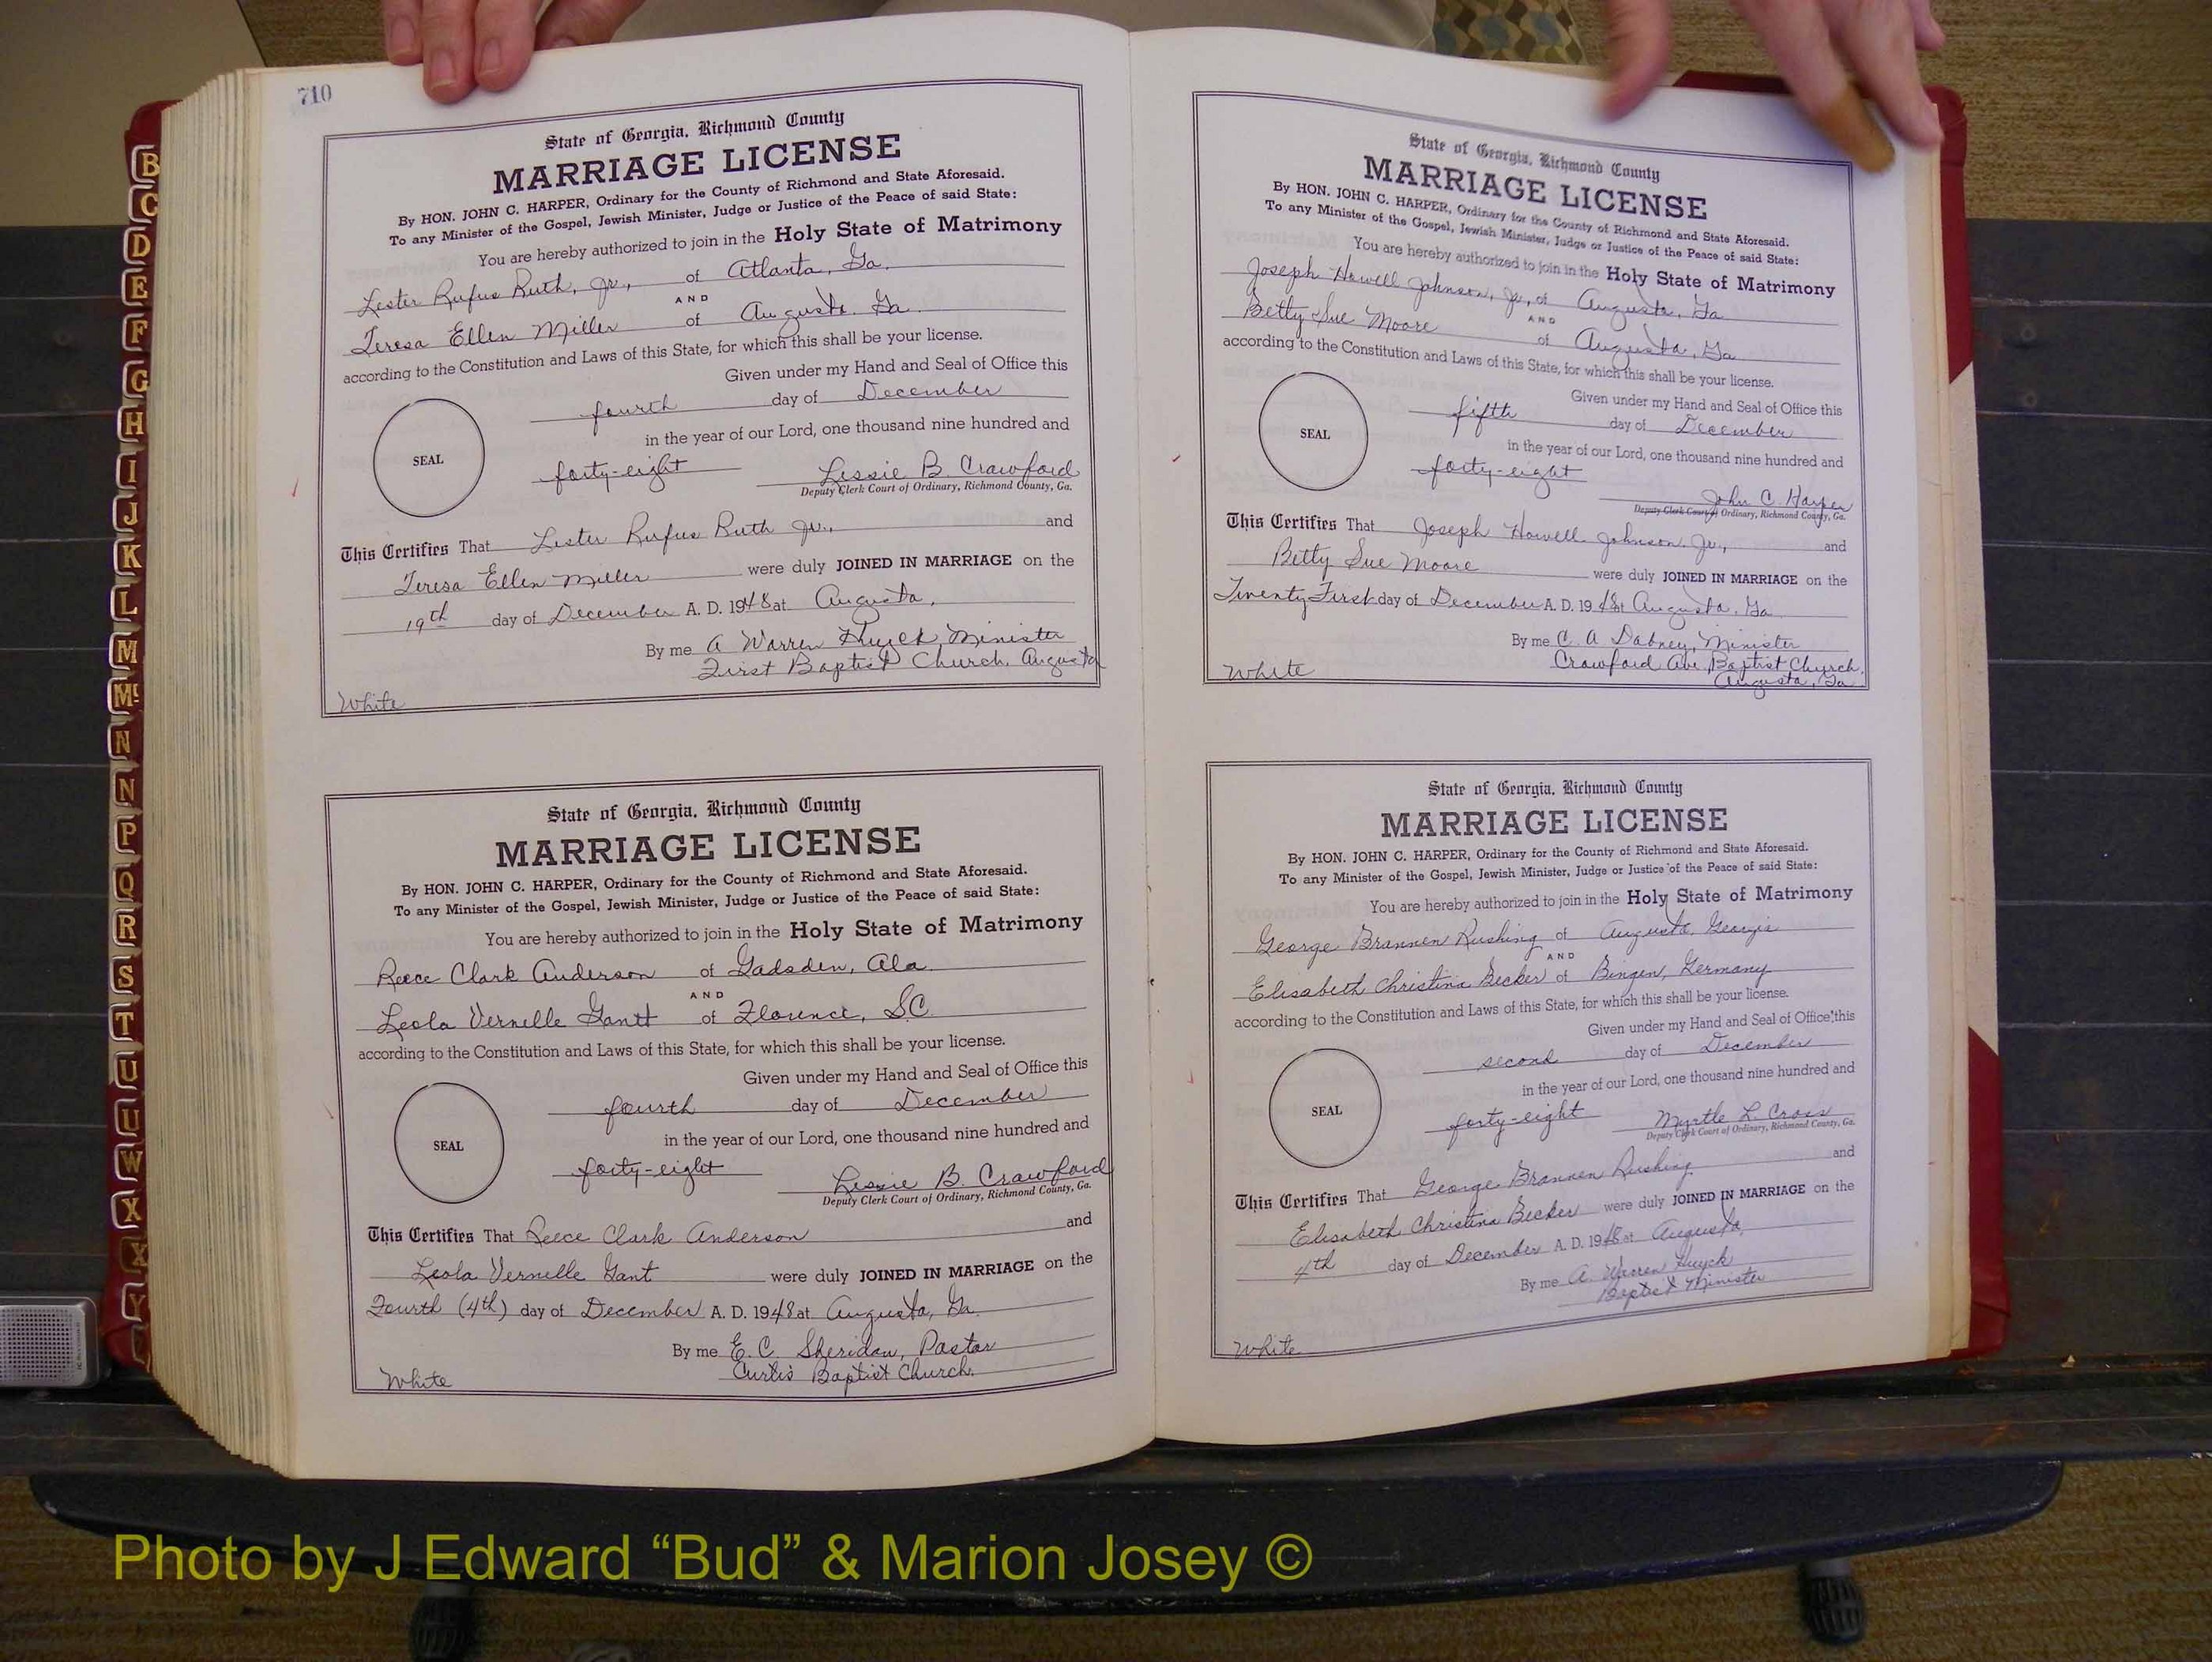 710
State of Georgia, Richmond County
MARRIAGE LICENSE
By HON. JOHN C. HARPER, Ordinary for the County of Richmond and State Aforesaid.
To any Minister of the Gospel, Jewish Minister, Judge or Justice of the Peace of said State:
You are hereby authorized to join in the Holy State of Matrimony
Lester Rufus Ruth, Jr., of Atlanta, Ga.
AND
Teresa Ellen Miller of Augusta, Ga.
according to the Constitution and Laws of this State, for which this shall be your license.
Given under my Hand and Seal of Office this
fourth day of December
in the year of our Lord, one thousand nine hundred and
SEAL
forty-eight Lessie B. Crawford
Deputy Clerk Court of Ordinary, Richmond County, Ga.
This Certifies That Lester Rufus Ruth Jr., and
Teresa Ellen Miller were duly JOINED IN MARRIAGE on the
19th day of December A. D. 1948 at Augusta,
By me A Warren Huyck, Minister
First Baptist Church, Augusta
White
State of Georgia, Richmond County
MARRIAGE LICENSE
By HON. JOHN C. HARPER, Ordinary for the County of Richmond and State Aforesaid.
To any Minister of the Gospel, Jewish Minister, Judge or Justice of the Peace of said State:
You are hereby authorized to join in the Holy State of Matrimony
Reece Clark Anderson of Gadsden, Ala.
AND
Leola Vernelle Gantt of Florence, S.C.
according to the Constitution and Laws of this State, for which this shall be your license.
Given under my Hand and Seal of Office this
fourth day of December
in the year of our Lord, one thousand nine hundred and
SEAL
forty-eight Lessie B. Crawford
Deputy Clerk Court of Ordinary, Richmond County, Ga.
This Certifies That Reece Clark Anderson and
Leola Vernelle Gant were duly JOINED IN MARRIAGE on the
Fourth (4th) day of December A. D. 1948 at Augusta, Ga.
By me E. C. Sheridan, Pastor
Curtis Baptist Church.
White
State of Georgia, Richmond County
MARRIAGE LICENSE
By HON. JOHN C. HARPER, Ordinary for the County of Richmond and State Aforesaid.
To any Minister of the Gospel, Jewish Minister, Judge or Justice of the Peace of said State:
You are hereby authorized to join in the Holy State of Matrimony
Joseph Howell Johnson, Jr., of Augusta, Ga
AND
Betty Sue Moore of Augusta, Ga
according to the Constitution and Laws of this State, for which this shall be your license.
Given under my Hand and Seal of Office this
fifth day of December
in the year of our Lord, one thousand nine hundred and
SEAL
forty-eight John C. Harper
Deputy Clerk Court of Ordinary, Richmond County, Ga.
This Certifies That Joseph Howell Johnson Jr., and
Betty Sue Moore were duly JOINED IN MARRIAGE on the
Twenty First day of December A. D. 1948 at Augusta, Ga
By me C. A Dabney, Minister
Crawford Ave Baptist Church,
Augusta, Ga
White
State of Georgia, Richmond County
MARRIAGE LICENSE
By HON. JOHN C. HARPER, Ordinary for the County of Richmond and State Aforesaid.
To any Minister of the Gospel, Jewish Minister, Judge or Justice of the Peace of said State:
You are hereby authorized to join in the Holy State of Matrimony
George Brannen Rushing of Augusta, Georgia
AND
Elisabeth Christina Becker of Bingen, Germany
according to the Constitution and Laws of this State, for which this shall be your license.
Given under my Hand and Seal of Office this
second day of December
in the year of our Lord, one thousand nine hundred and
SEAL
forty-eight Myrtle L. Cross
Deputy Clerk Court of Ordinary, Richmond County, Ga.
This Certifies That George Brannen Rushing and
Elisabeth Christina Becker were duly JOINED IN MARRIAGE on the
4th day of December A. D. 1948 at Augusta,
By me A. Warren Huyck
Baptist Minister
White
B
C
D
E
F
G
H
I
J
K
L
M
Mc
N
N
P
Q
R
S
T
U
U
W
X
X
Y
Photo by J Edward “Bud” & Marion Josey ©